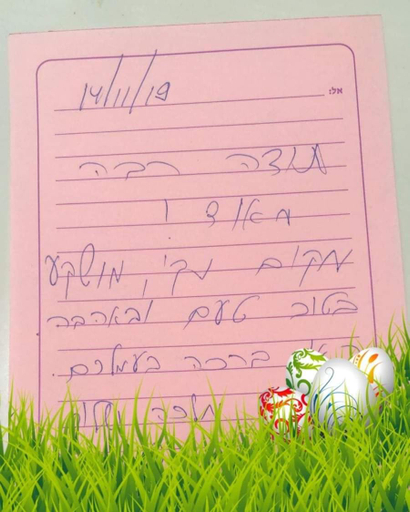 אל:
14/11/19
תודה רבה
מאוד !
מקום נקי, מושקע
בטוב טעם ובאהבה
ברכה בעמלכם.